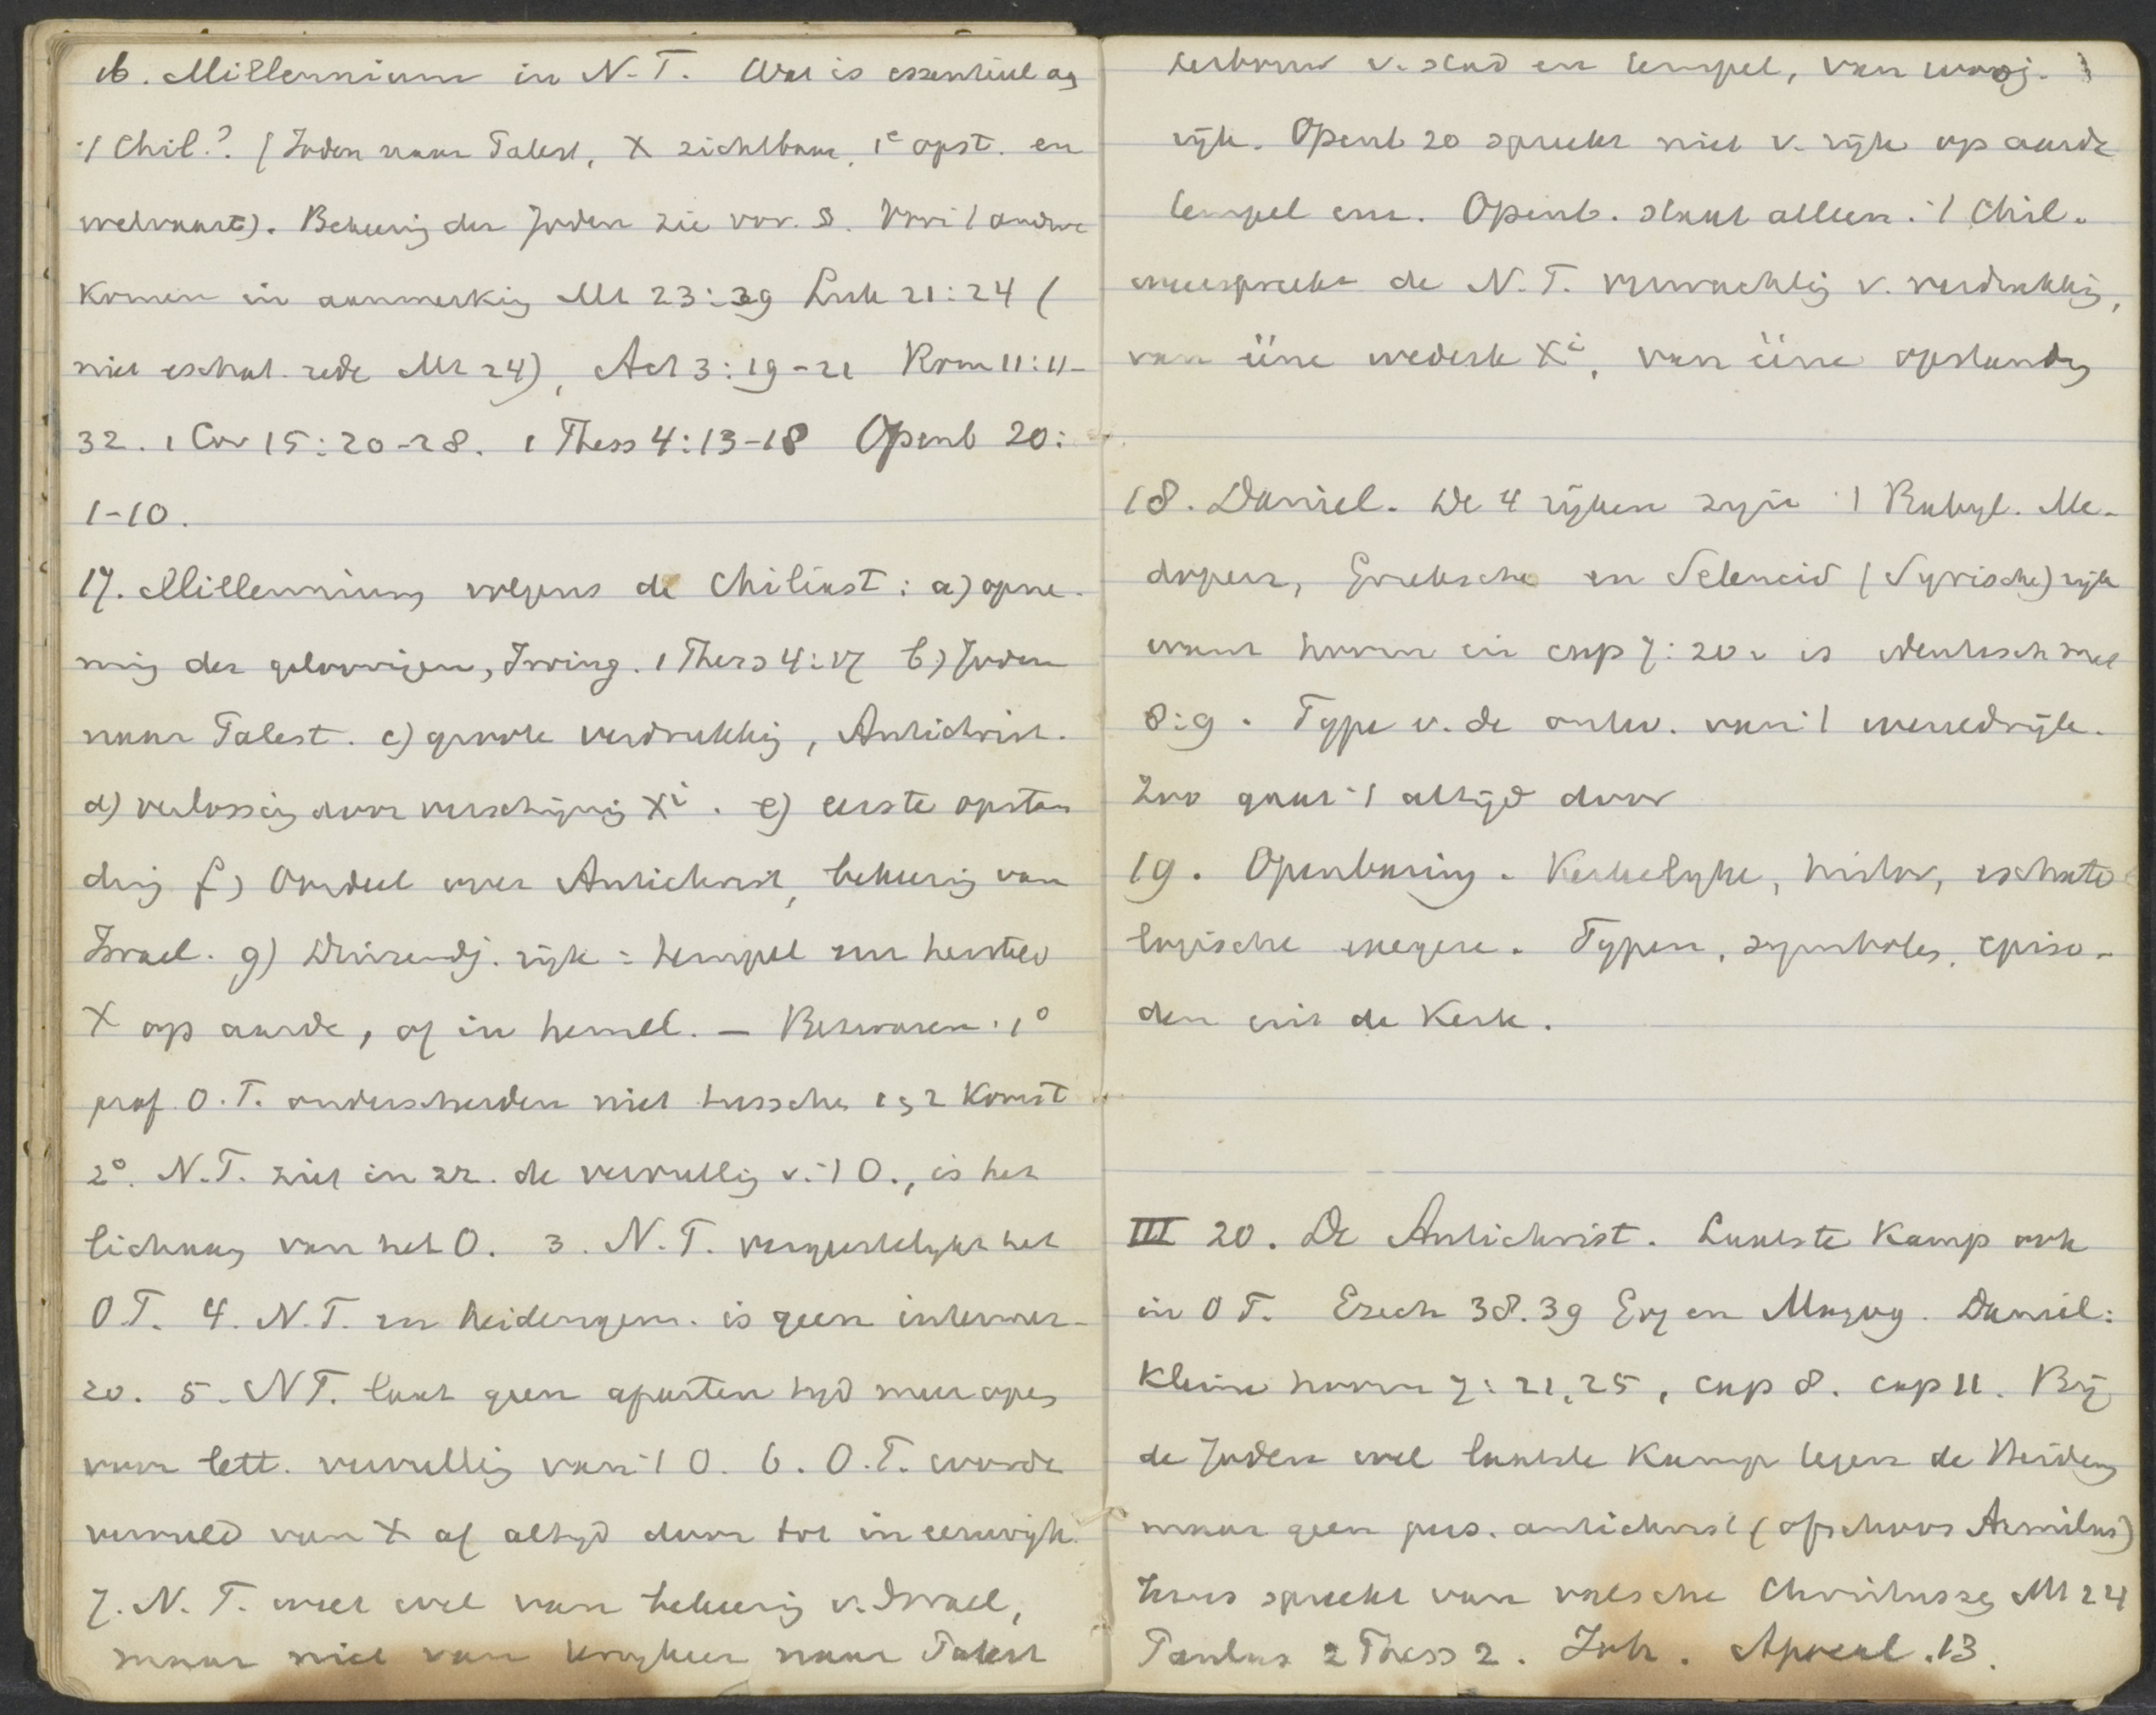 16. Millennium in N.T. Wat is essentieel aan
't Chil.? (Joden naar Palest, X zichtbaar, 1e opst. en
welvaart). Bekeering der Joden zie vor. §. Voor 't andere
komen in aanmerking Mt 23:39 Luk 21:24 (
niet eschat. rede Mt 24), Act 3:19-21 Rom 11:11-
32. 1 Cor 15:20-28. 1 Thess 4:13-18 Openb 20:
1-10.
17. Millennium volgens de Chiliast: a) opne-
ming der geloovigen, Irving. 1 Thess 4:17 b) Joden
naar Palest. c) groote verdrukking, Antichrist.
d) verlossing door verschijning Xi. e) eerste opstan
ding f) Oordeel over Antichrist, bekeering van
Israel. g) Duizendj. rijk = tempel enz hersteld
X op aarde, of in hemel. — Bezwaren. 1°
prof. O.T. onderscheiden niet tusschen 1 & 2 Komst
2°. N.T. ziet in zz. de vervulling v. 't O., is het
lichaam van het O. 3. N.T. vergeestelijkt het
O T. 4. N.T. en heidengem. is geen intermez-
zo. 5. N T. laat geen aparten tijd meer open
voor lett. vervulling van 't O. 6. O.T. wordt
vervuld van X af altijd door tot in eeuwigh.
7. N.T. weet wel van bekeering v. Israel,
maar niet van terugkeer naar Palest
herbouw v. stad en tempel, van
rijk. Openb 20 spreekt niet v. rijk op aarde
tempel enz. Openb. staat alleen. 't Chil.
weerspreekt de N.T. verwachting v. verdrukking,
van ééne wederk Xi, van ééne opstanding
18. Daniel. De 4 rijken zijn 't Babyl. Me-
dopers, Grieksche en Seleucid (Syrische) rijk
want hoorn in cap 7:20 v is identisch met
8:9. Type v. de ontw. van 't wereldrijk.
Zoo gaat 't altijd door
19. Openbaring. Kerkelijke, histor, eschato
logische exegese. Typen, symbolen, episo-
den uit de Kerk.
III 20. De Antichrist. Laatste Kamp ook
in O T. Ezech 38.39 Gog en Magog. Daniel:
Kleine hoorn 7:21,25, cap 8. cap 11. Bij
de Joden wel laatste Kamp tegen de Heidenen
maar geen pers. antichrist (ofschoon Armilus)
Jezus spreekt van valsche Christussen Mt 24
Paulus 2 Thess 2. Joh. Apocal. 13.